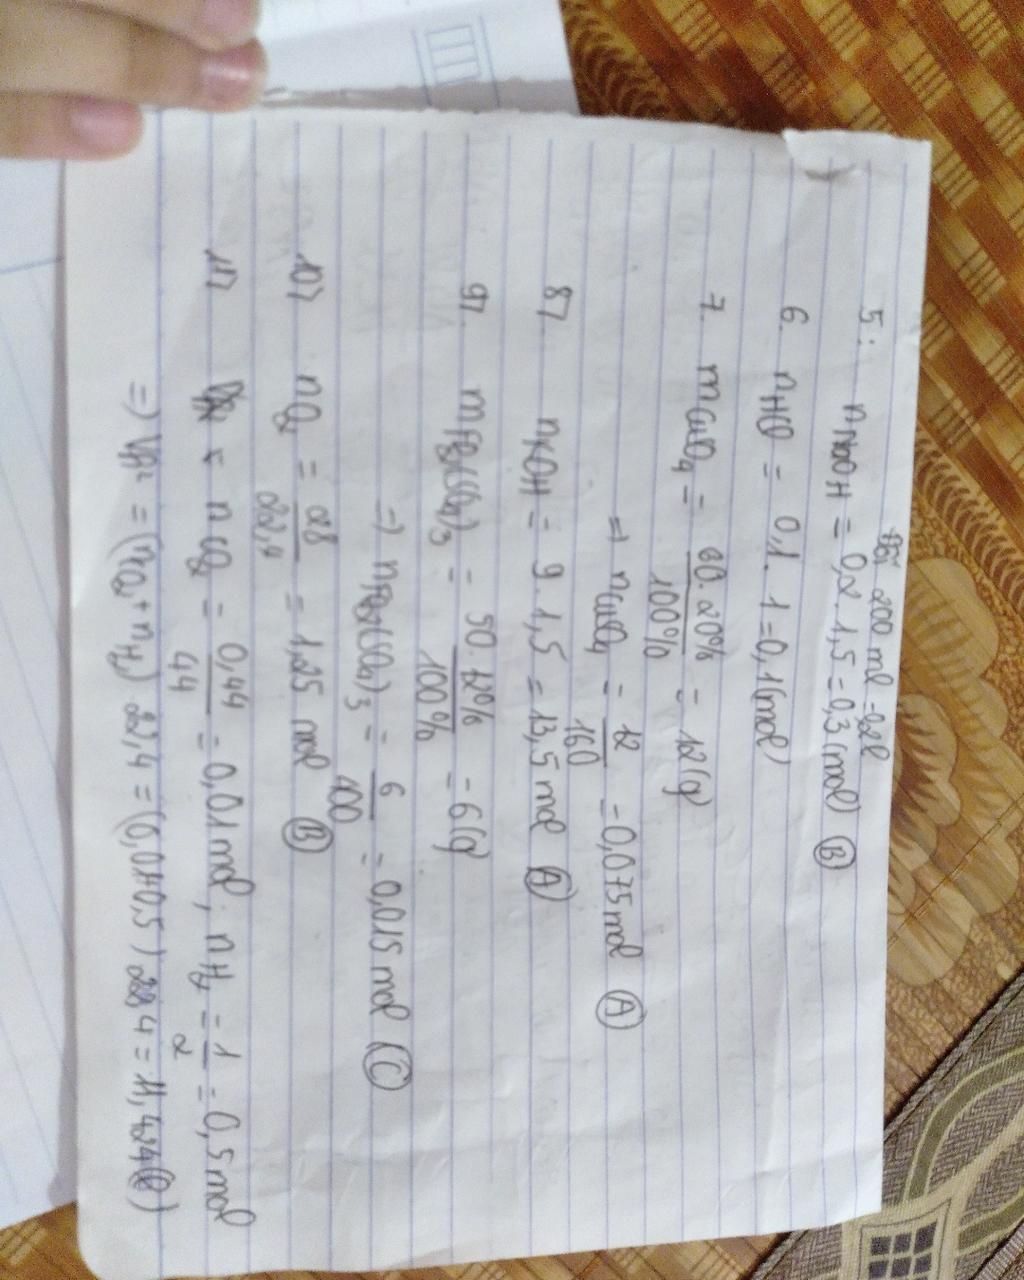 200 ml = 0,2l
5: nNaOH = 0,2.1,5 = 0,3(mol) (B)
6. nHCl = 0,1.1 = 0,1(mol)
7. mCuSO4 = 60.20% / 100% = 12(g)
=> nCuSO4 = 12 / 160 = 0,075 mol (A)
8/. nKOH = 9.1,5 = 13,5 mol (A)
9/. mFe2(SO4)3 = 50.12% / 100% = 6(g)
=> nFe2(SO4)3 = 6 / 400 = 0,015 mol (C)
10/ nO2 = 28 / 22,4 = 1,25 mol (B)
11/ nCO2 = 0,44 / 44 = 0,01 mol; nH2 = 1 / 2 = 0,5 mol
=> Vhh = (nCO2 + nH2) 22,4 = (0,01+0,5) 22,4 = 11,424(l)